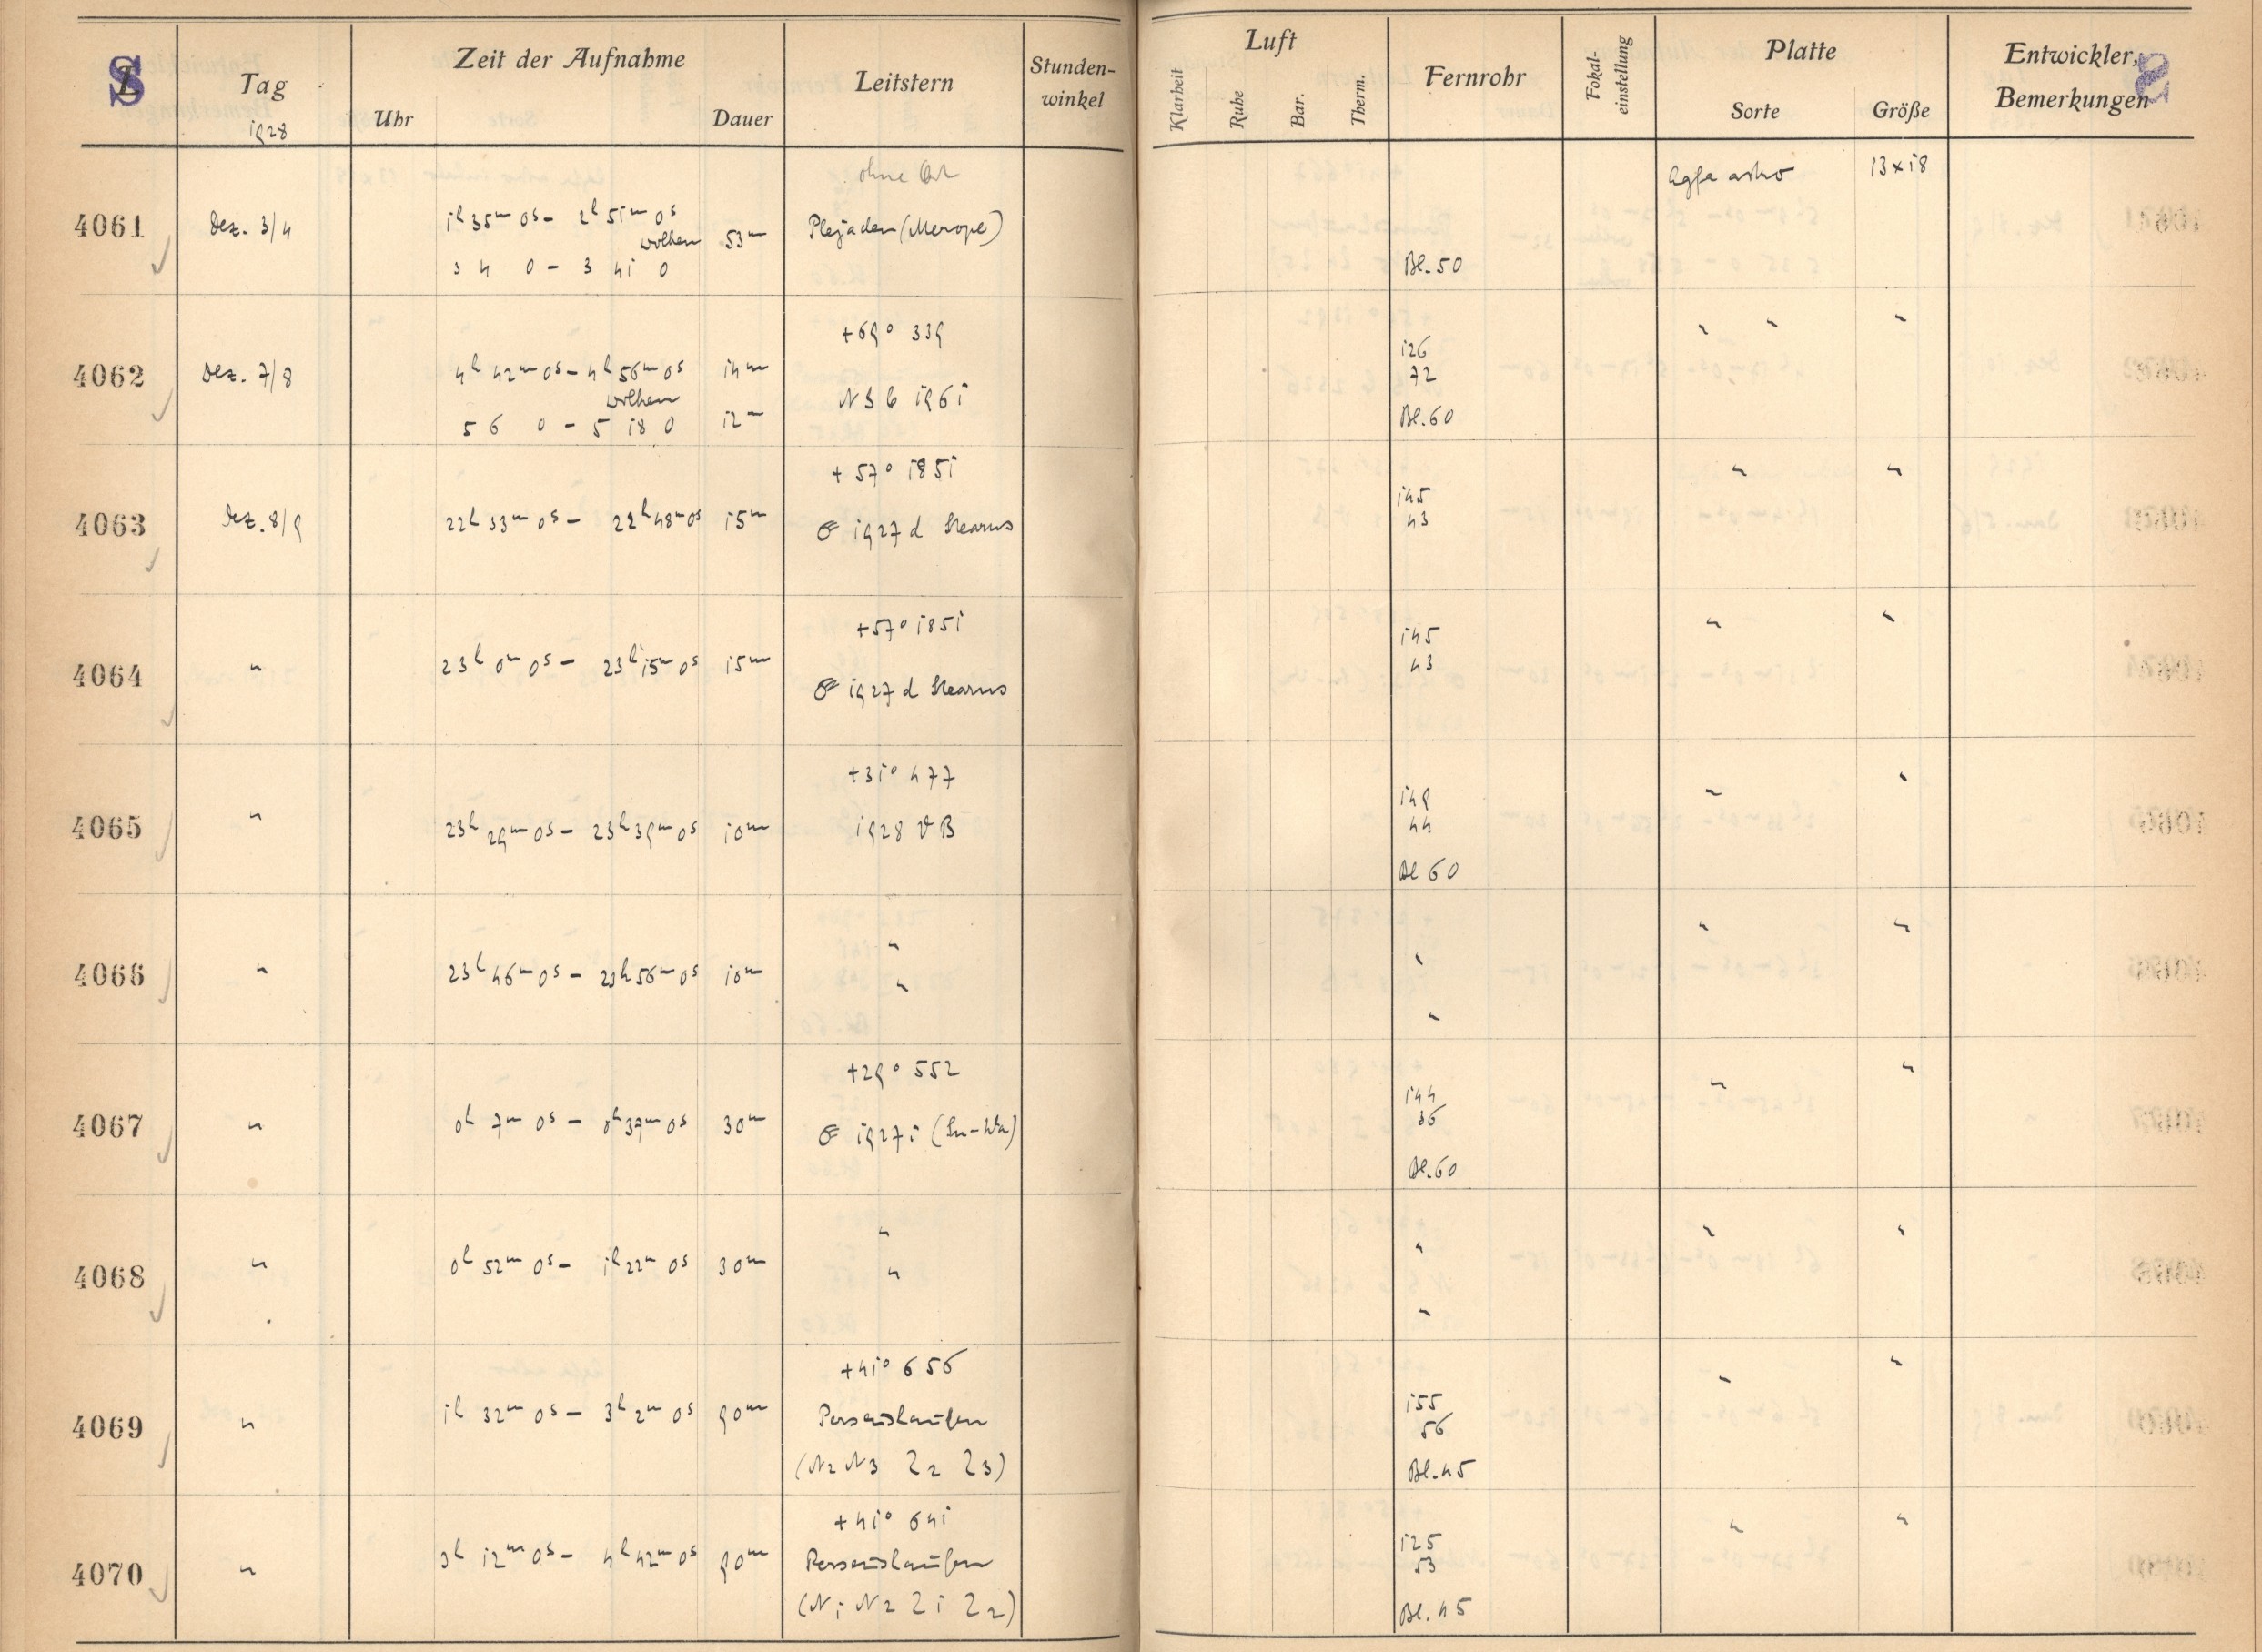 S
Tag
1928
Zeit der Aufnahme
Uhr
Dauer
Leitstern
Stunden-
winkel
Luft
Klarheit
Ruhe
Bar.
Therm.
Fernrohr
Fokal-
einstellung
Platte
Sorte
Größe
Entwickler,
Bemerkungen
ohne
Agfa astro 13x18
4061 Dez. 3/4 1h 35m 0s - 2h 51m 0s
wolken 53m Plejaden (Merope)
3 4 0 - 3 41 0
Bl. 50
+69° 339
" " "
4062 Dez. 7/8 4h 42m 0s - 4h 56m 0s 14m
126
72
wolken
N 3 6 1961
5 6 0 - 5 18 0 12m
Bl. 60
+57° 1851
" "
4063 Dez. 8/9 22h 33m 0s - 22h 48m 0s 15m
1927 d Stearns
145
43
+57° 1851
" "
4064 " 23h 0m 0s - 23h 15m 0s 15m
1927 d Stearns
145
43
+31° 477
" "
4065 " 23h 29m 0s - 23h 39m 0s 10m 1928 VB
149
44
Bl 60
4066 " 23h 46m 0s - 23h 56m 0s 10m
"
"
"
"
" "
+29° 552
" "
4067 " 0h 7m 0s - 0h 37m 0s 30m
1927 i (Sw-Wa)
144
36
Bl. 60
4068 " 0h 52m 0s - 1h 22m 0s 30m
"
"
"
"
" "
+41° 656
" "
4069 " 1h 32m 0s - 3h 2m 0s 90m
Perseushaufen
(N2 N3 Z2 Z3)
155
56
Bl. 45
+41° 641
" "
4070 " 3h 12m 0s - 4h 42m 0s 90m
Perseushaufen
(N1 N2 Z1 Z2)
125
53
Bl. 45